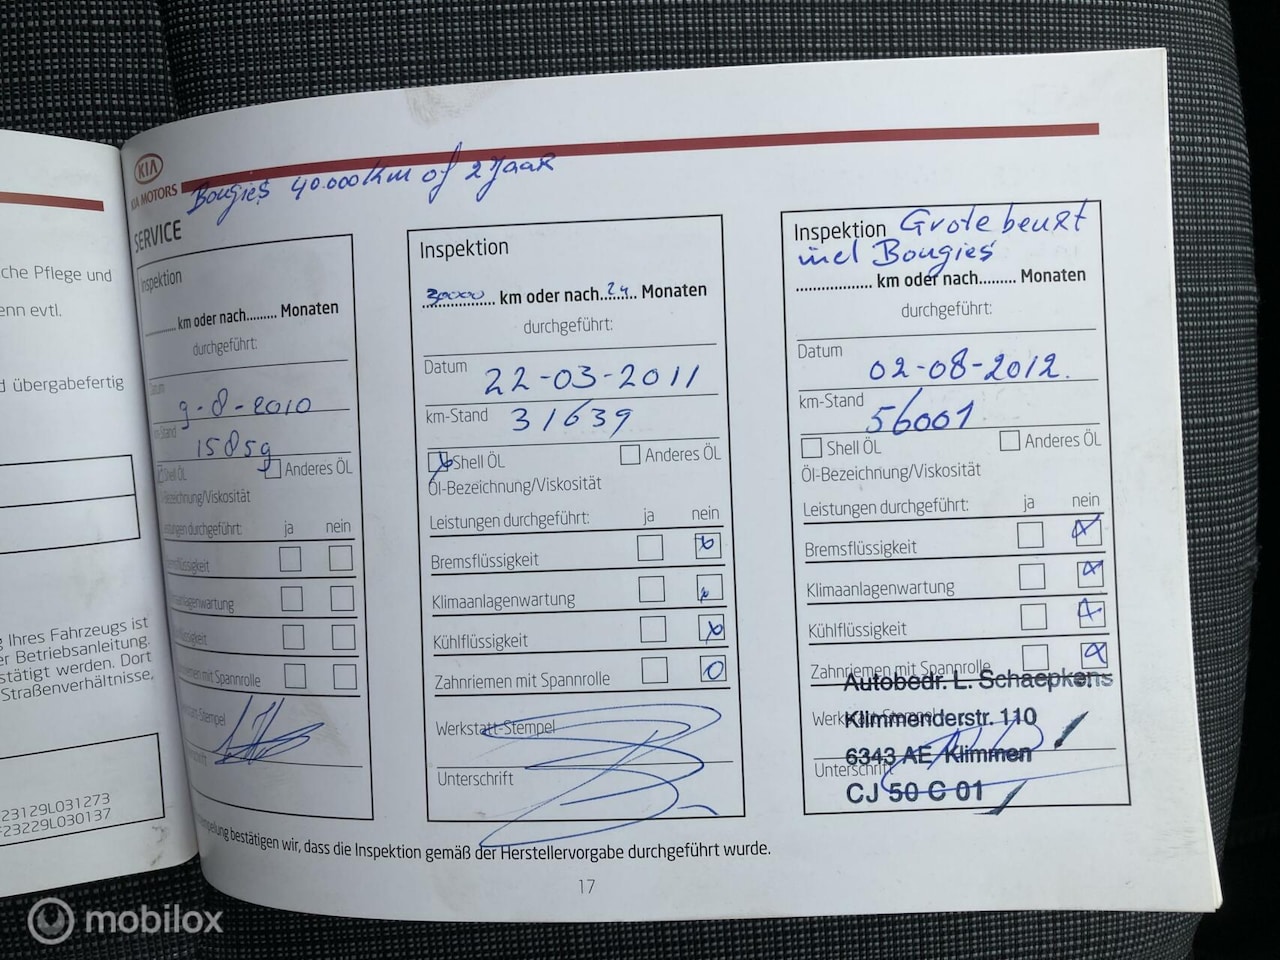 che Pflege und
enn evtl.
d übergabefertig
g Ihres Fahrzeugs ist
er Betriebsanleitung.
stätigt werden. Dort
Straßenverhältnisse,
23129L031273
F23229L030137
KIA
KIA MOTORS
Bougies 40.000km of 2 Jaar
SERVICE
Inspektion
........ km oder nach......... Monaten
durchgeführt:
Datum
9-8-2010
km-Stand
15859
Shell ÖL
Anderes ÖL
Bezeichnung/Viskosität
stungen durchgeführt:
ja nein
msflüssigkeit
maanlagenwartung
flüssigkeit
riemen mit Spannrolle
tt-Stempel
Inspektion
30000 km oder nach 24 Monaten
durchgeführt:
Datum
22-03-2011
km-Stand
31639
Shell ÖL
Anderes ÖL
Öl-Bezeichnung/Viskosität
Leistungen durchgeführt: ja nein
Bremsflüssigkeit
Klimaanlagenwartung
Kühlflüssigkeit
Zahnriemen mit Spannrolle
Werkstatt-Stempel
Unterschrift
Inspektion Grote beurt
incl Bougies
.................. km oder nach......... Monaten
durchgeführt:
Datum
02-08-2012.
km-Stand
56001
Shell ÖL
Anderes ÖL
Öl-Bezeichnung/Viskosität
Leistungen durchgeführt: ja nein
Bremsflüssigkeit
Klimaanlagenwartung
Kühlflüssigkeit
Zahnriemen mit Spannrolle
Autobedr. L. Schaepkens
Werkstatt-Stempel
Klimmenderstr. 110
6343 AE Klimmen
Unterschrift
CJ 50 C 01
mpelung bestätigen wir, dass die Inspektion gemäß der Herstellervorgabe durchgeführt wurde.
17
mobilox